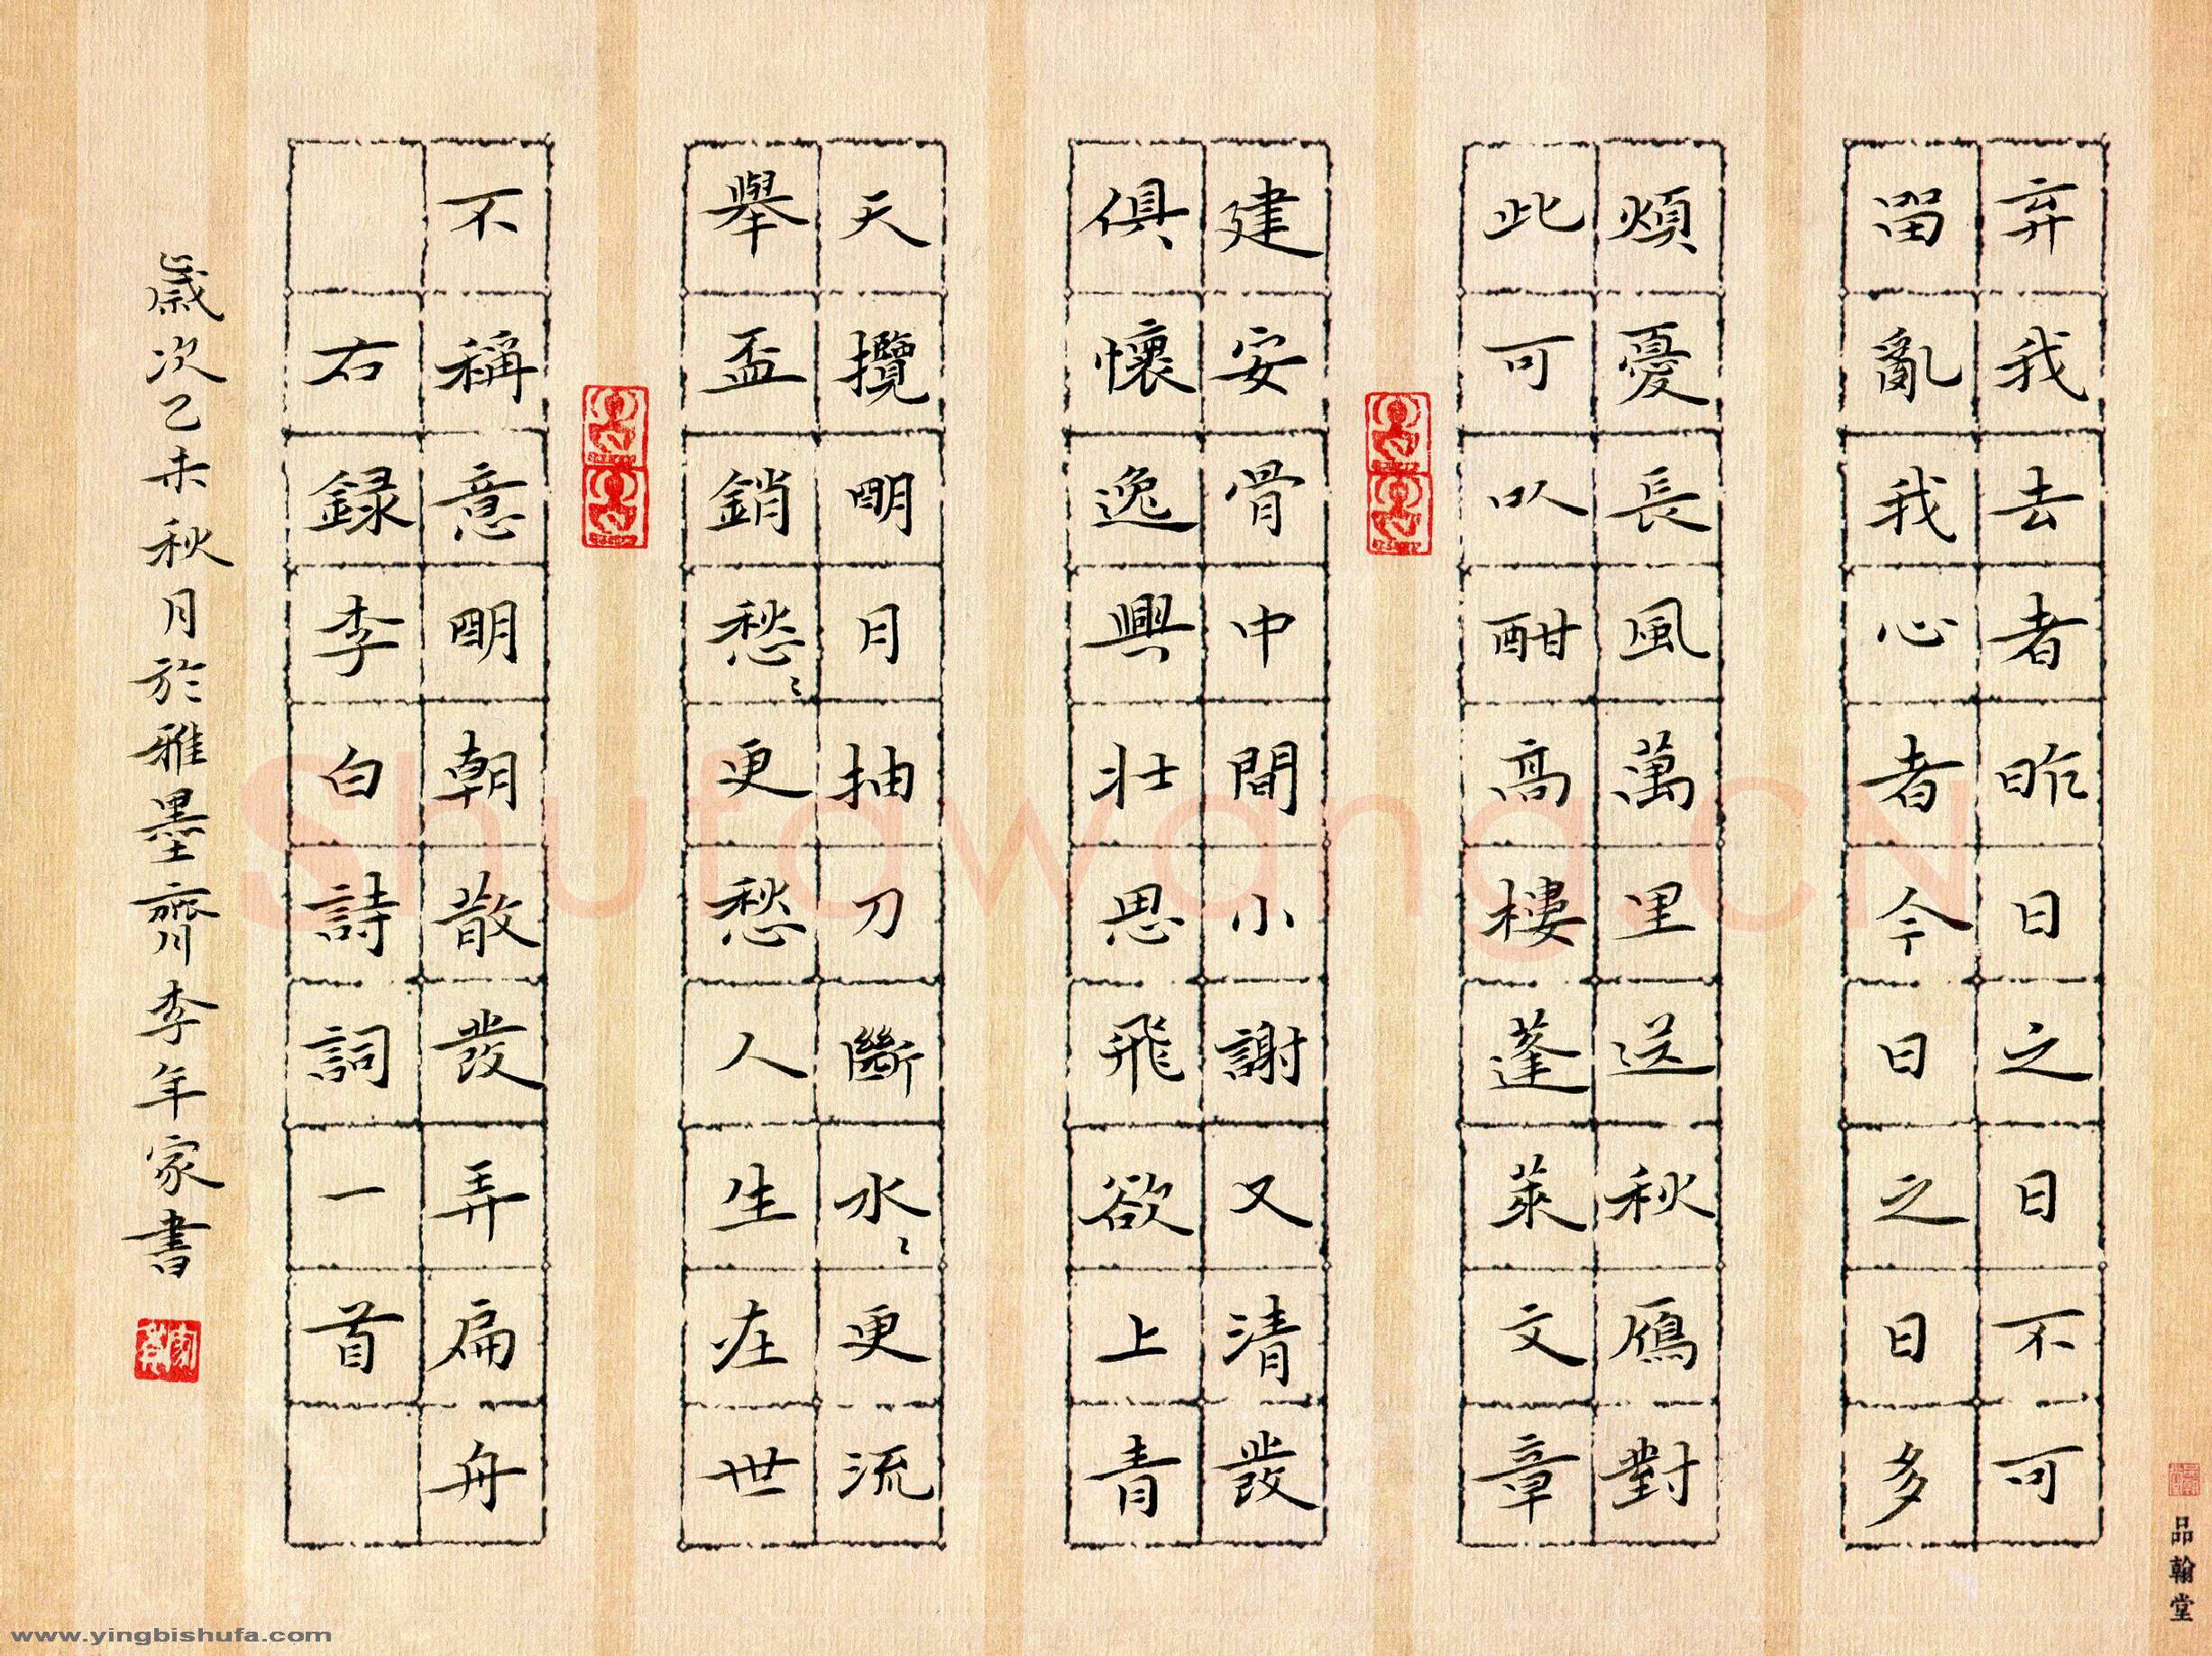 弃我去者昨日之日不可
畱亂我心者今日之日多
煩憂長風萬里送秋鴈對
此可以酣高樓蓬萊文章
建安骨中間小謝又清發
俱懷逸興壯思飛欲上青
天攬明月抽刀斷水々更流
舉盃銷愁々更愁人生在世
不稱意明朝散發弄扁舟
右録李白詩詞一首
歲次乙未秋月於雅墨齋李年家書
品翰堂
Shufawang.CN
www.yingbishufa.com